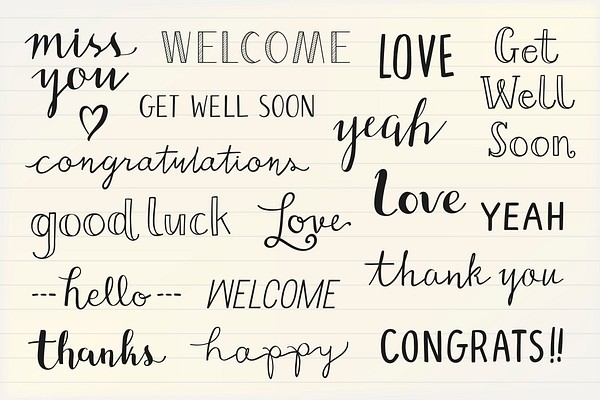 miss you
WELCOME
LOVE
Get
Well
Soon
GET WELL SOON
yeah
congratulations
Love
YEAH
good luck
Love
thank you
--- hello ---
WELCOME
thanks
happy
CONGRATS!!